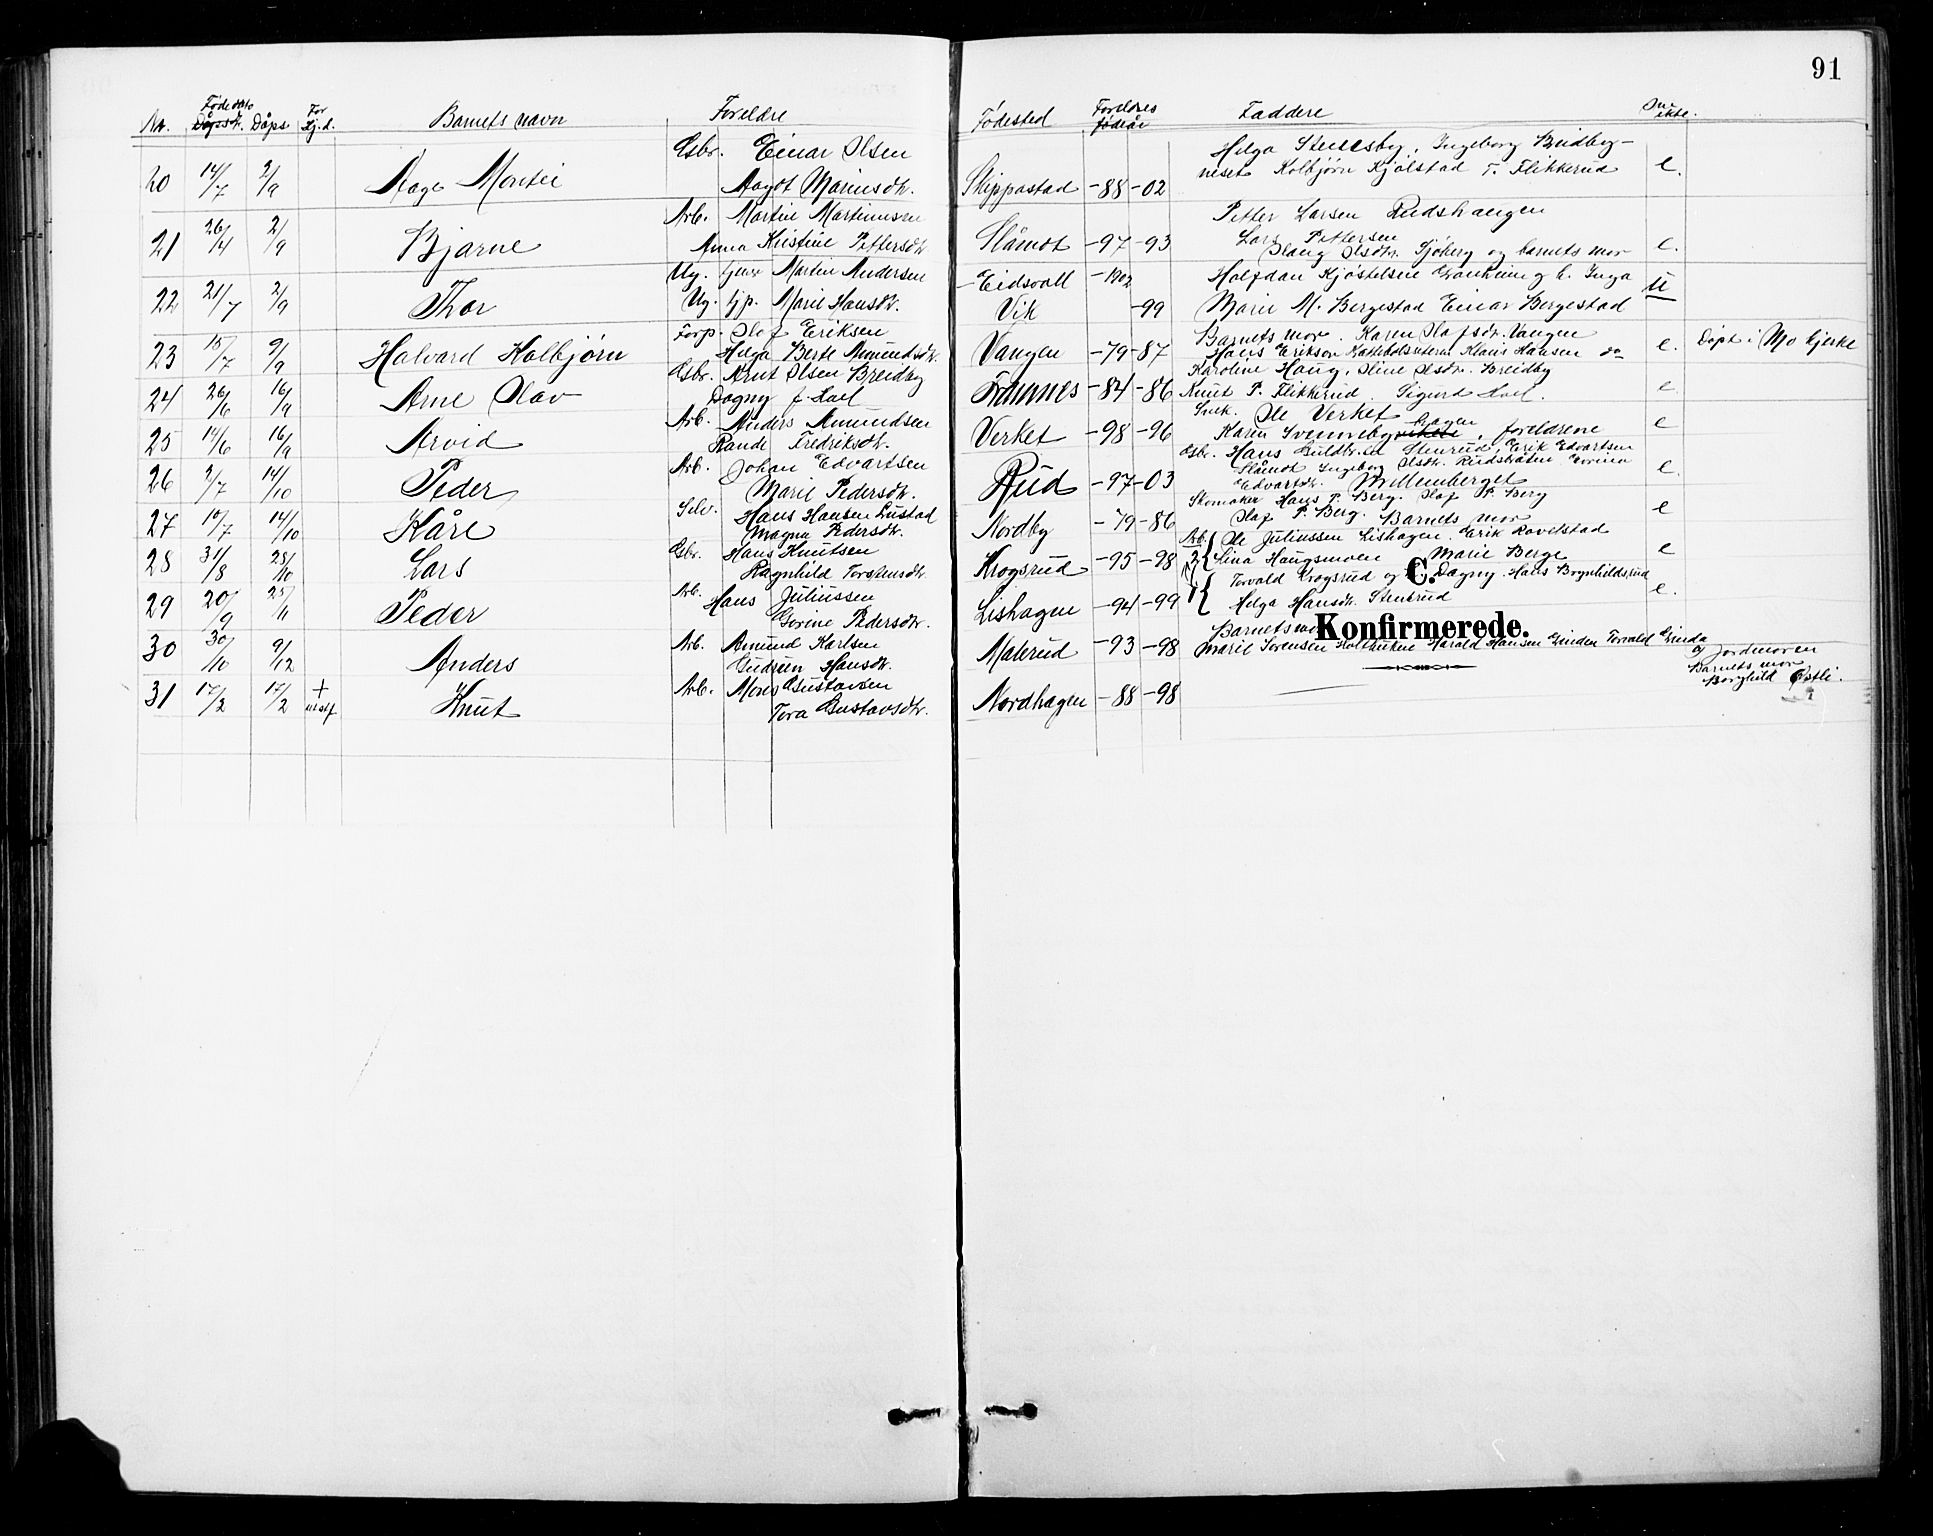 91
No. Fødedato Dåps Barnets navn Foreldre Fødested Foreldres fødeår Faddere
20 14/7 2/9 Aage Gbr. Einar Olsen
Aagot Mariusdtr. Skippastad -88 -02
Helga Stensby, Ingeborg Breidby-
neset Kolbjørn Kjølstad T. Flikkerud e.
21 26/4 2/9 Bjarne Arb. Martin Martinusen
Anna Kristine Pettersdtr. Slåmot -97 -93
Petter Larsen Rudshaugen
Lars Pettersen
Olaug Olsdtr. Sjøberg og barnets mor e.
22 21/7 2/9 Thor Ug. Martin Andersen
Ug. tjp. Marie Hansdtr.
Eidsvoll
Vik -99
Halfdan
Marie M. Bergestad Einar Bergestad u
23 15/7 9/9 Halvard Kolbjørn Forp. Olaf Eriksen
Helga Berte Amundsdtr. Vangen -79 -87
Barnets mor. Karen Olafsdtr. Vangen
Hans Erikson Klaus Hansen do e. Døpt i Mo kjerke
24 26/6 16/9 Arne Olav Gbr. Arnt Olsen Breidby
Dagny f. Hoel -84 -86
Karoline Haug, Oline Olsdtr. Breidby
Knut P. Flikkerud. Sigurd Hoel. e
25 14/6 16/9 Arvid Arb. Anders Amundsen
Rande Fredriksdtr. Verket -98 -96
Snek. Ole Verket
Karen Svenneby Hagen, foreldrene e
26 2/7 14/10 Peder Arb. Johan Edvartsen
Marie Pedersdtr. Rud -97 -03
Gbr. Hans Stenrud, Erik Edvartsen
Slåmot Ingeborg Olsdtr. Rudsbråten
Edvartsdtr. Willemberget e.
27 10/7 14/10 Kåre Selv. Hans Hansen Lustad
Magna Pedersdtr. Nordby -79 -86
Skomaker Hans P. Berg. Olaf P. Berg
Olaf P. Berg. Barnets mor e
28 31/8 28/10 Lars Gbr. Hans Knutsen
Ragnhild Torstensdtr. Krogsrud -95 -98
Arb. Ole Juliussen Lishagen. Erik Ravelstad
2 Lina Haugsmoen Marie Berge e
29 20/9 25/11 Peder Arb. Hans Juliussen
Gorine Pedersdtr. Lishagen -94 -99
1 Torvald Krogsrud og Dagny. Hans Brynhildsrud
Helga Hansdtr. Stenrud e.
C.
Konfirmerede.
30 30/10 9/12 Anders Arb. Amund Karlsen
Gudrun Hansdtr. Malerud -93 -98
Barnets mor
Marie Sørensen Harald Hansen Linden Torvald Linda
31 17/2 17/2 + Knut Arb. Mons Gustavsen
Tora Gustavsdtr. Nordhagen -88 -98
Jordmoren
Barnets mor
Borghild Østli.